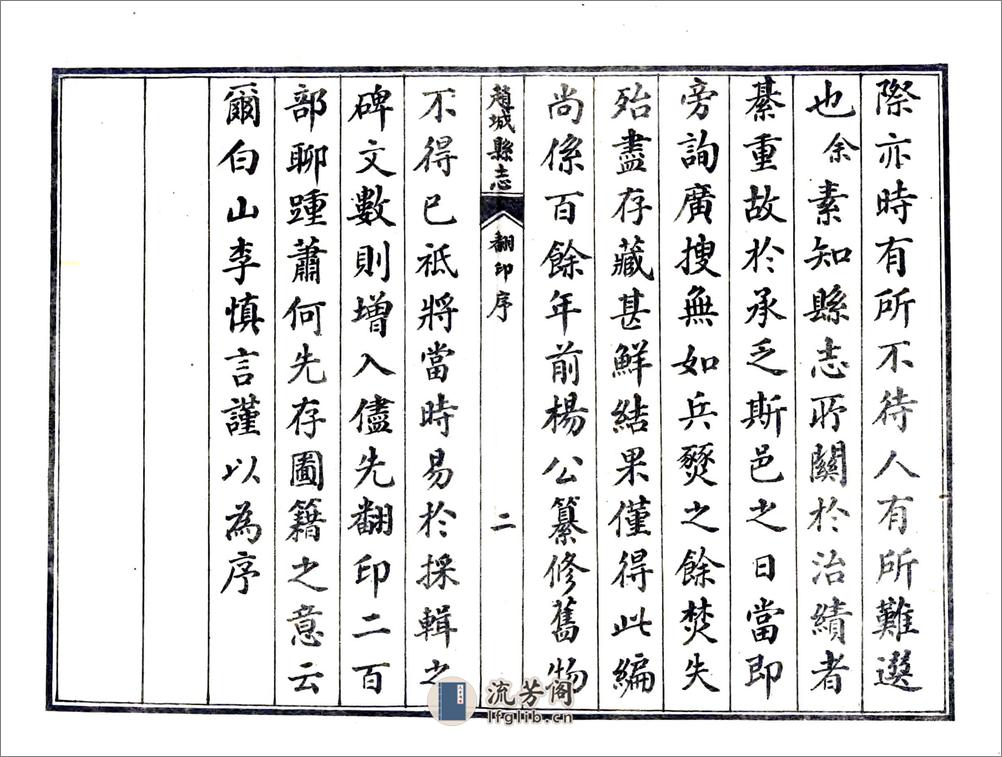 際亦時有所不待人有所難選
也余素知縣志所關於治績者
綦重故於承乏斯邑之日當即
旁詢廣搜無如兵燹之餘焚失
殆盡存藏甚鮮結果僅得此編
尚係百餘年前楊公纂修舊物
趙城縣志 翻印序 二
不得已祇將當時易於採輯之
碑文數則增入儘先翻印二百
部聊踵蕭何先存圖籍之意云
爾白山李慎言謹以為序
流芳阁
lfglib.cn